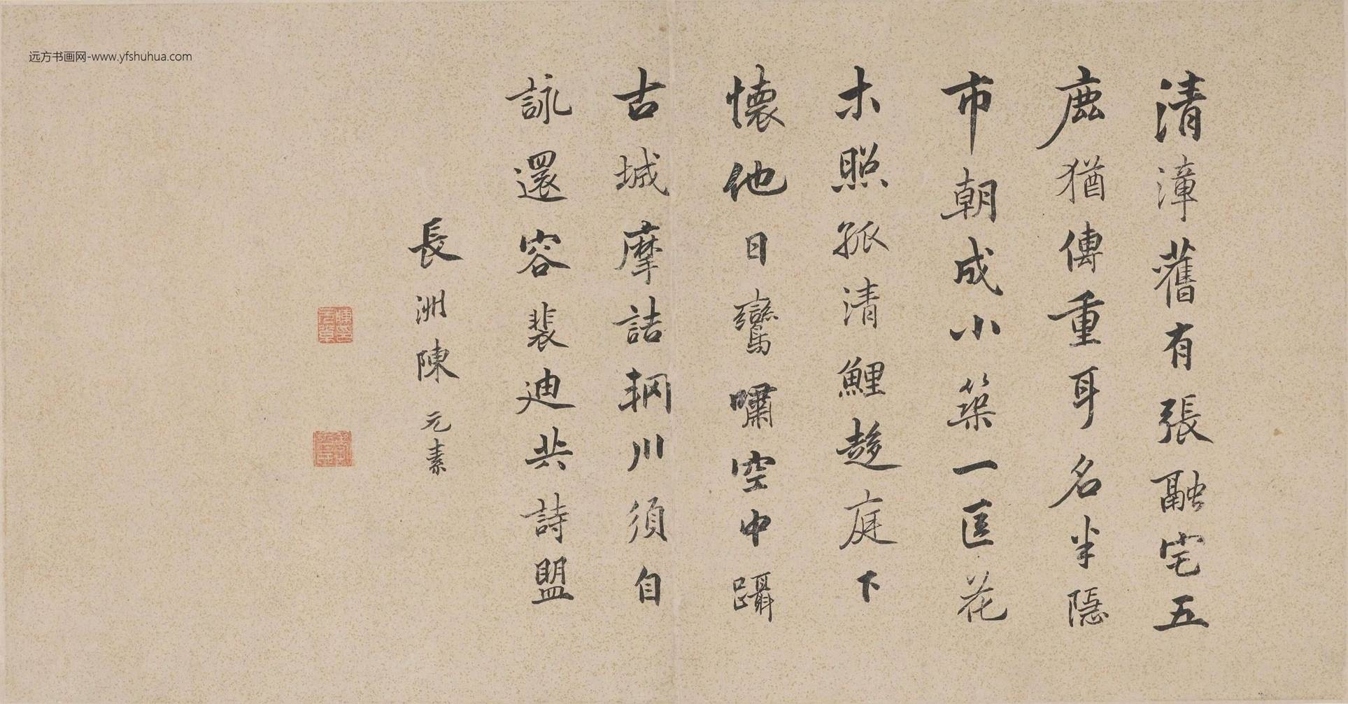 清漳舊有張融宅五
鹿猶傳重耳名半隱
市朝成小築一區花
木照孤清鯉趍庭下
懷他日鸞嘯空中躡
古城摩詰輞川須自
詠還容裴迪共詩盟
長洲陳元素
远方书画网-www.yfshuhua.com